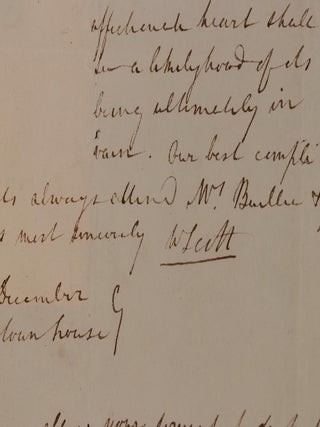 affectionate heart shall
a likelyhood of its
being ultimately in
vain. Our best compli
always attend Mrs. Baillie &
most sincerely WScott
December